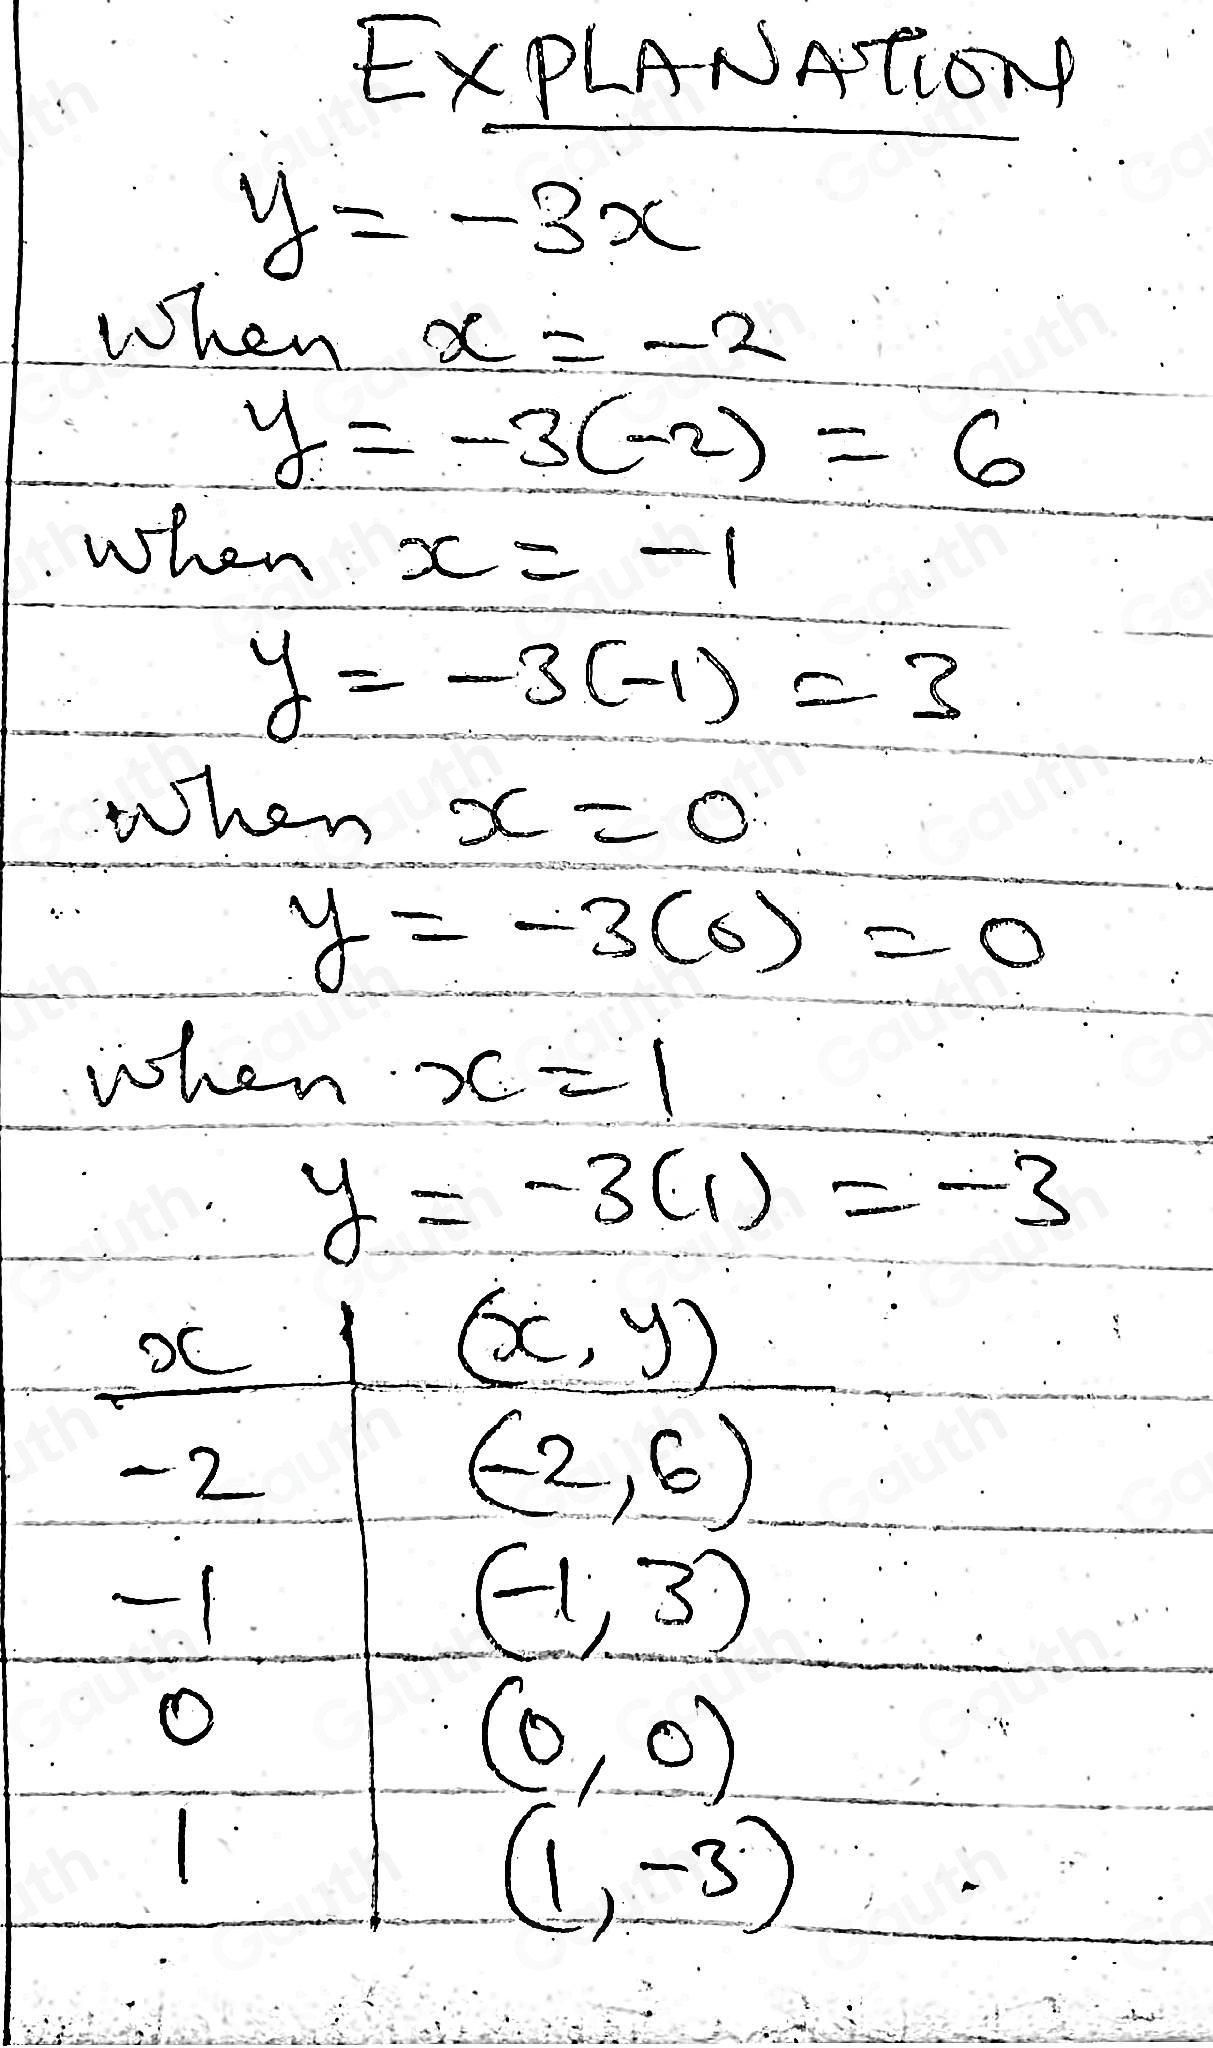 EXPLANATION
y = -3x
when x = -2
y = -3(-2) = 6
when x = -1
y = -3(-1) = 3
when x = 0
y = -3(0) = 0
when x = 1
y = -3(1) = -3
x | (x, y)
-2 | (-2, 6)
-1 | (-1, 3)
0 | (0, 0)
1 | (1, -3)
Gauth